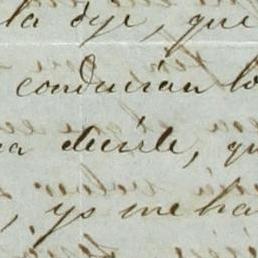 la dije, que
conducian lo
a decirle, qu
, yo me ha